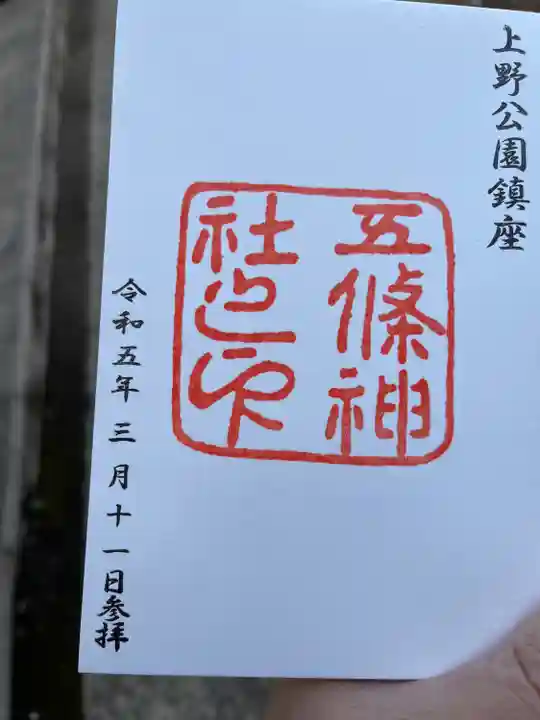 上野公園鎮座
五條神
社之印
令和五年三月十一日参拝